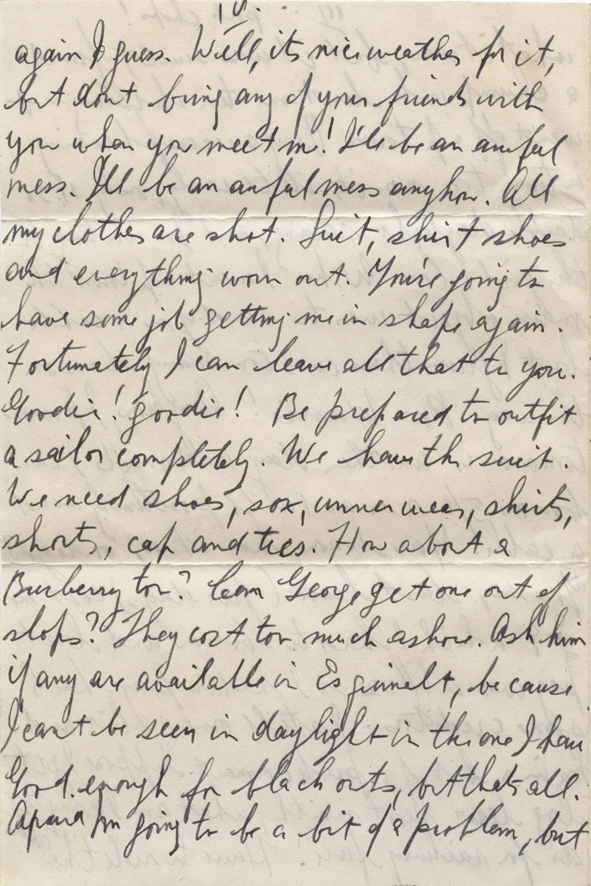 IV.
again I guess. Well, its nice weather for it,
but dont bring any of your friends with
you when you meet me! I'll be an awful
mess. I'll be an awful mess anyhow. All
my clothes are shot. Suit, shirt shoes
and everything worn out. You're going to
have some job getting me in shape again.
Fortunately I can leave all that to you.
Goodie! goodie! Be prepared to outfit
a sailor completely. We have the suit.
We need shoes, sox, unnerwear, shirts,
shorts, cap and ties. How about a
Burberry too? Can George get one out of
slops? They cost too much ashore. Ask him
if any are available in Esquimalt, because
I cant be seen in daylight in the one I have
Good enough for blackouts, but thats all.
I'm going to be a bit of a problem, but